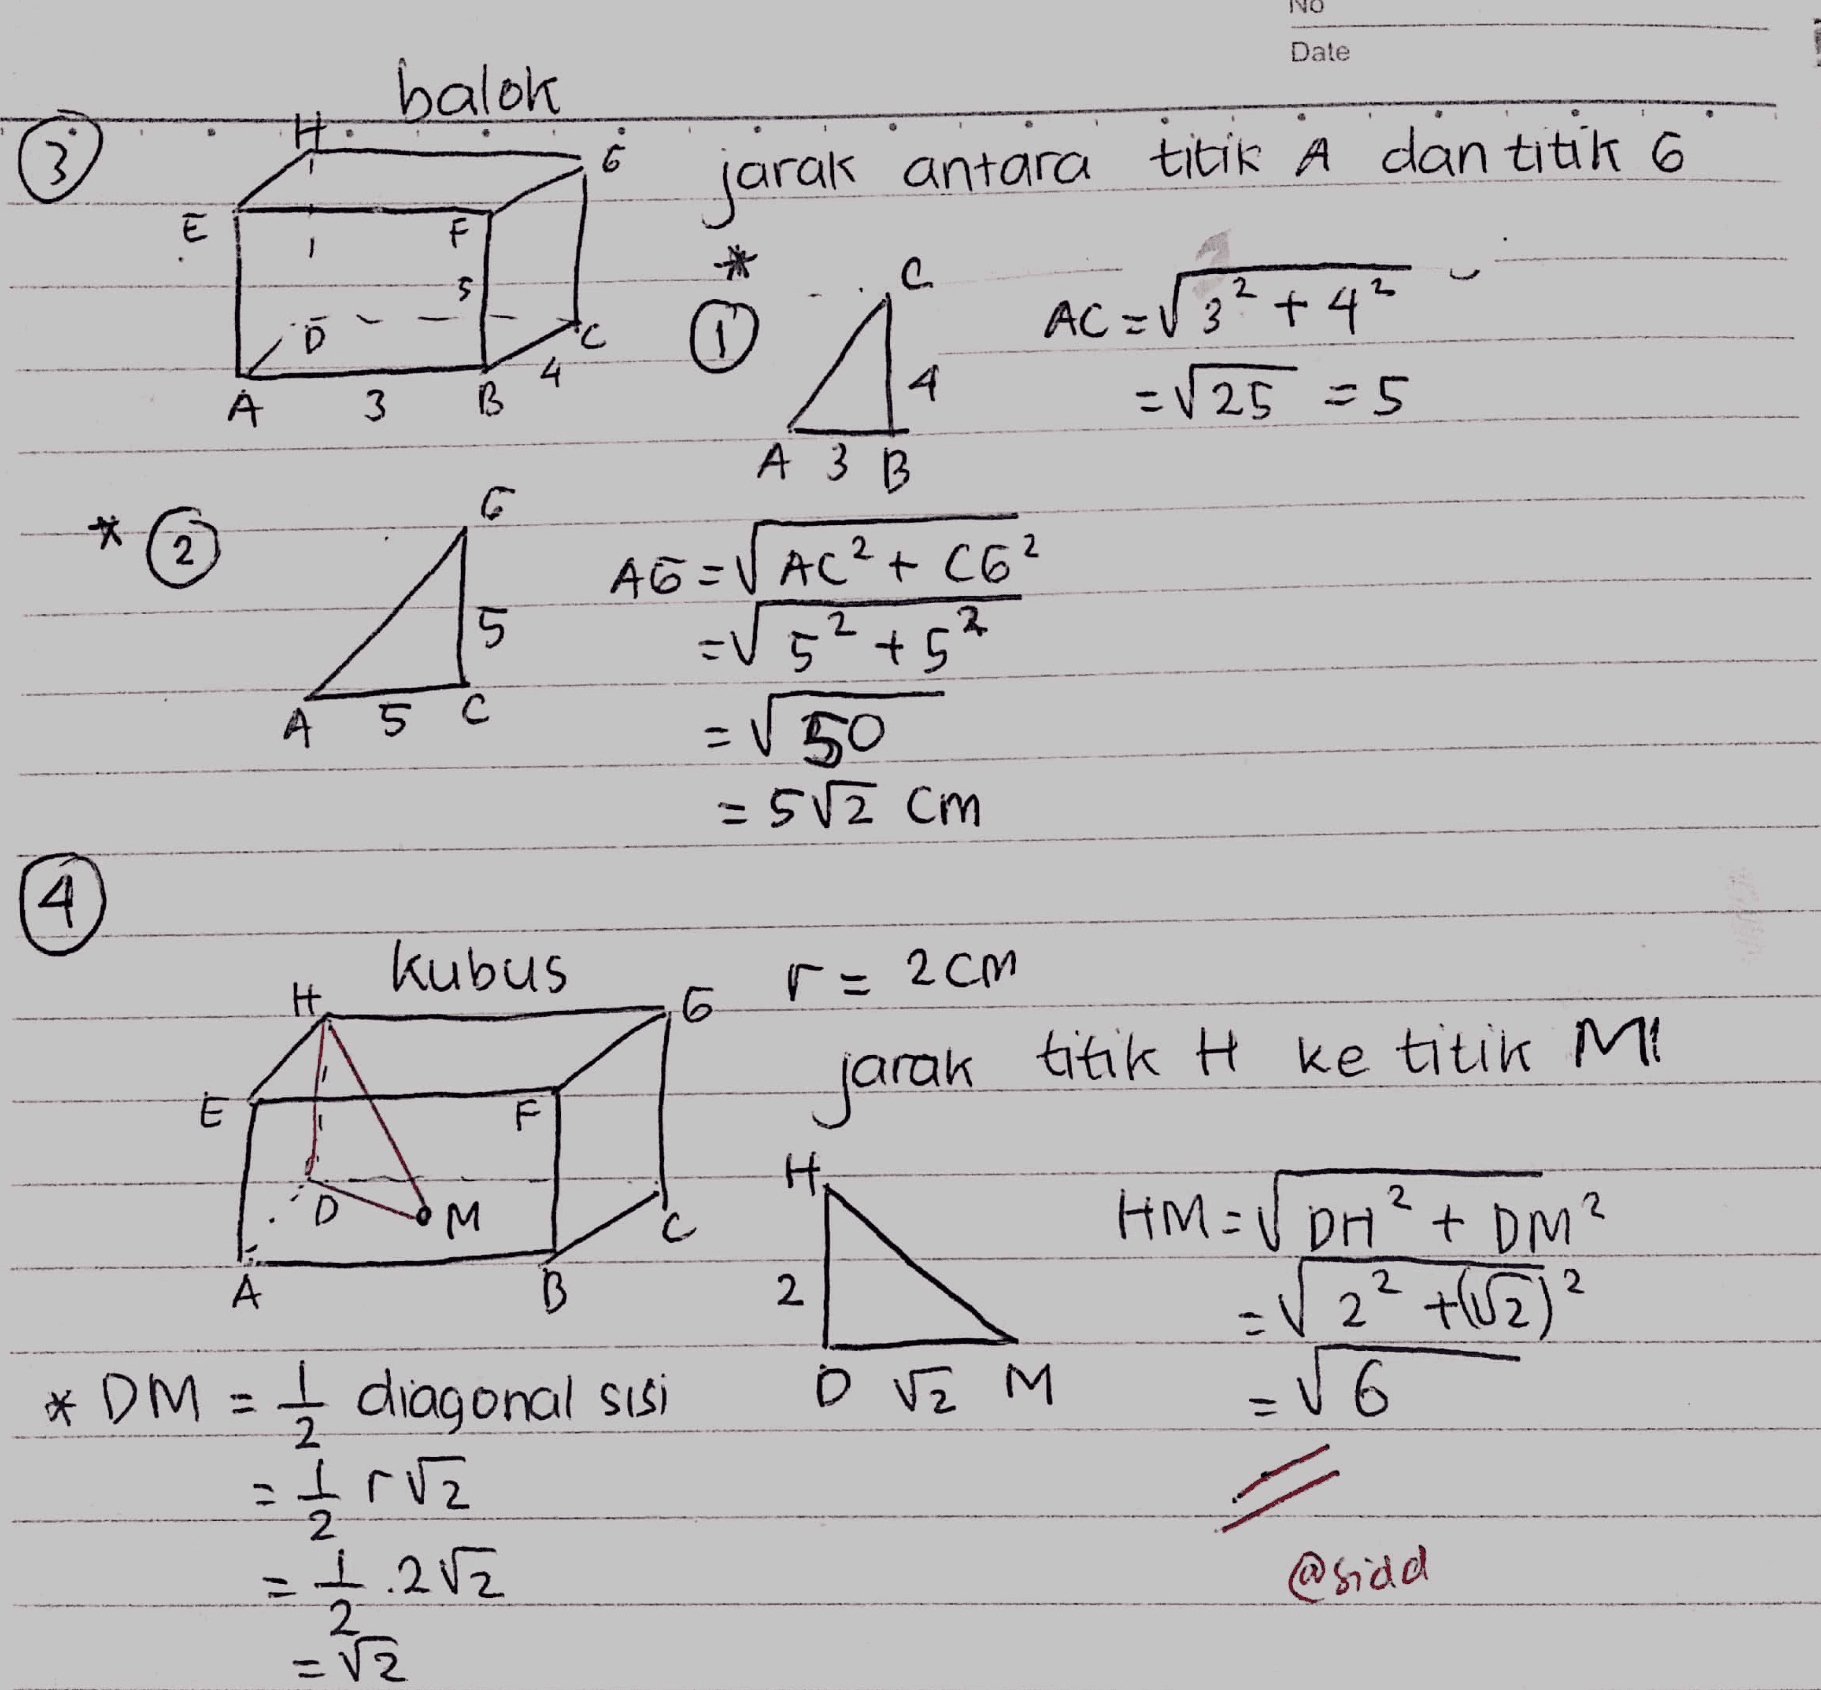 No
Date
balok
③
H
G
E
F
5
D
C
4
A
3
B
jarak antara titik A dan titik G
*
①
C
4
A 3 B
AC = √3² + 4²
= √25 = 5
* ②
G
5
A 5 C
AG = √AC² + CG²
= √5² + 5²
= √50
= 5√2 cm
④
kubus
r = 2 cm
H
G
E
F
D
M
C
A
B
jarak titik H ke titik M!
H
2
D √2 M
HM = √DH² + DM²
= √2² + (√2)²
= √6
* DM = 1/2 diagonal sisi
= 1/2 r√2
= 1/2 . 2√2
= √2
@sidd